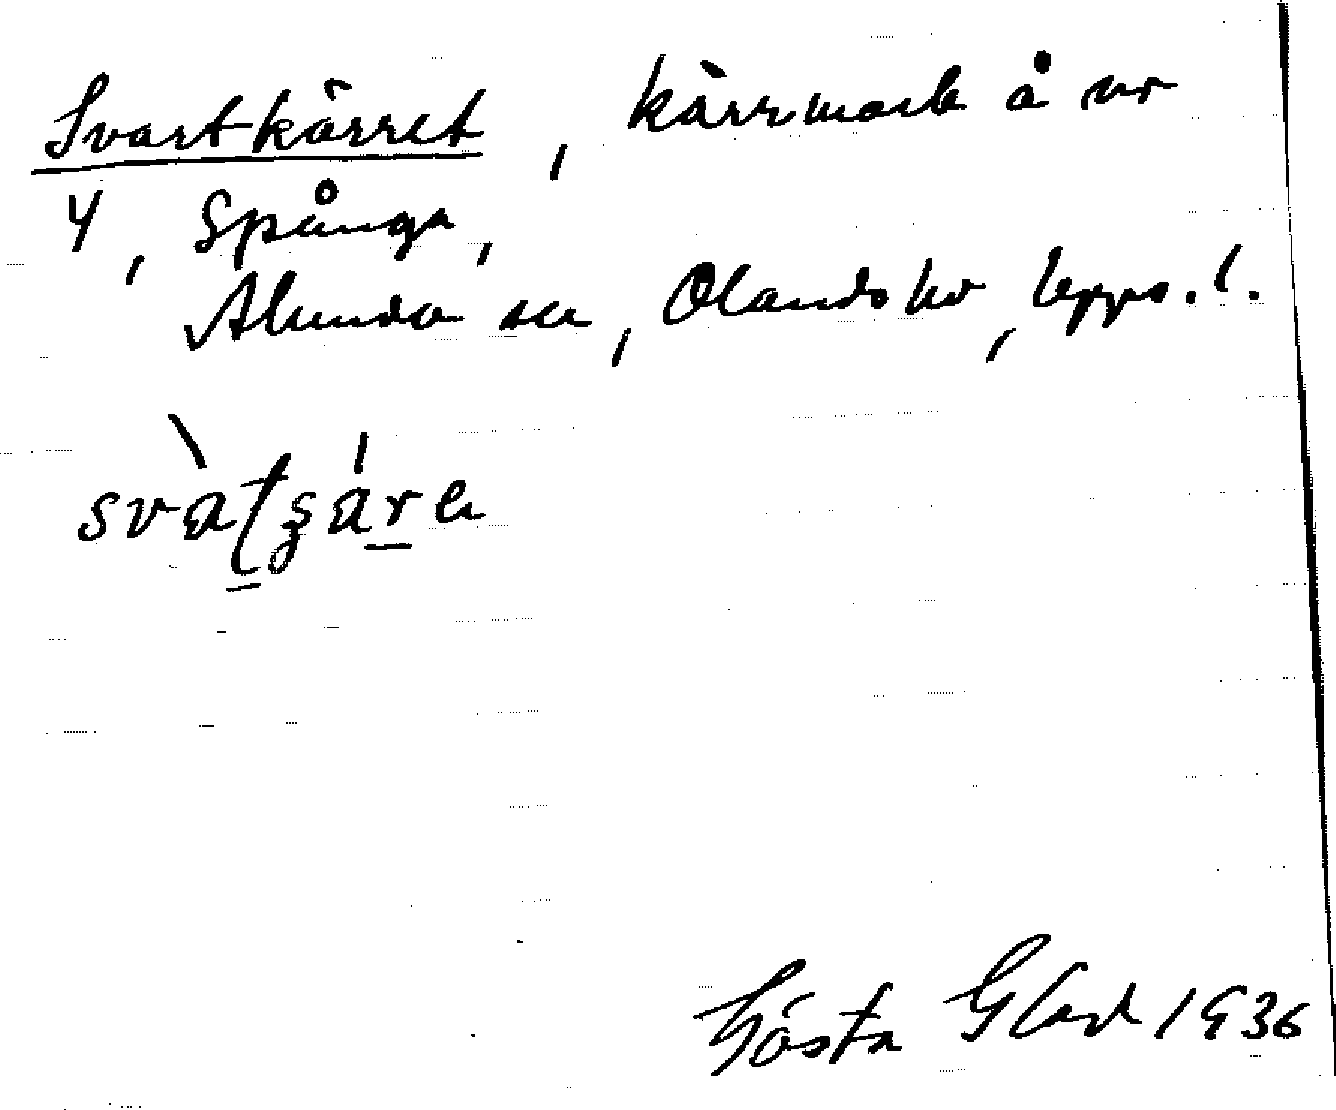 Svartkärret, kärrmark å nr
4, Spånga,
Alunda sn, Olands hd, Upps. l.
svàʈʂáre
Gösta Glad 1936